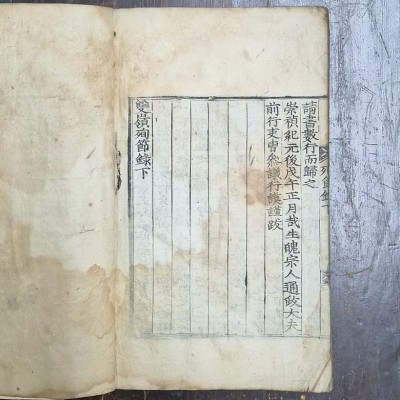 讀書數行而歸之
崇禎紀元後戊午正月哉生魄宗人通政大夫
前行吏曹參議行謹跋
雙嶺殉節錄下